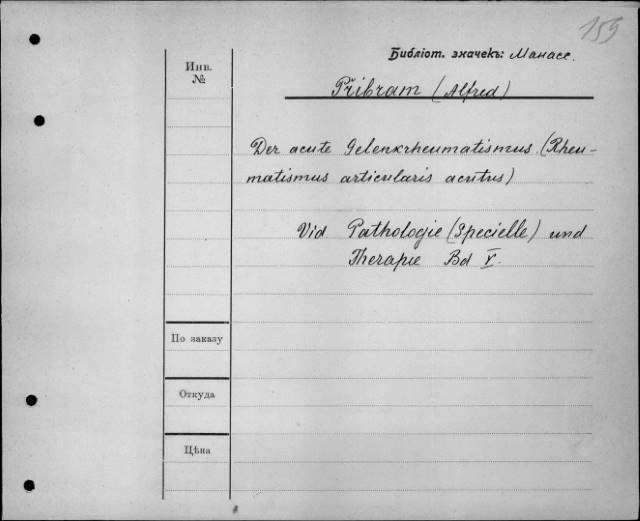 159
Библіот. значекъ: Манасс.
Инв.
№
Přibram (Alfred)
Der acute Gelenkrheumatismus. (Rheu-
matismus articularis acutus)
Vid Pathologie (Specielle) und
Therapie Bd V.
По заказу
Откуда
Цѣна